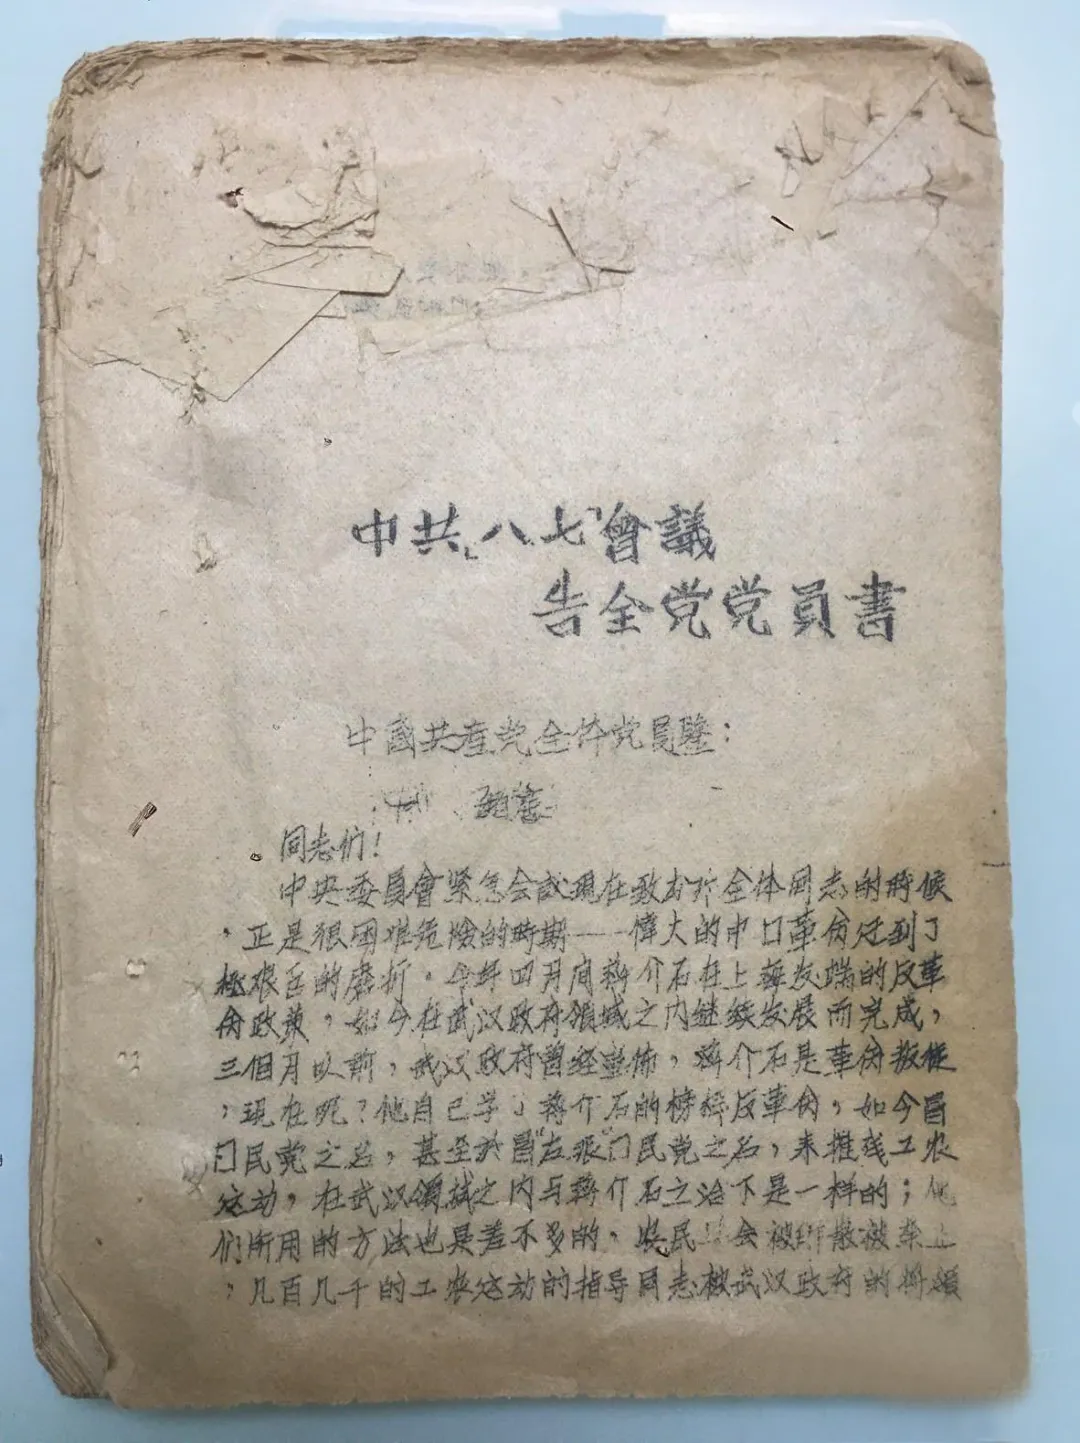 中共“八七”會議
告全党党员書
中國共產党全体党員鑒：
同志们！
中央委員會緊急会议現在致书於全体同志的時候
，正是很困难危險的時期——偉大的中囗革命受到了
极艰苦的磨折。今年四月间蒋介石在上海发端的反革
命政策，如今在武汉政府領域之内继续发展而完成，
三個月以前，武汉政府曾经宣佈，蒋介石是革命叛徒
，現在呢？他自己学了蒋介石的榜样反革命，如今冒
囗民党之名，甚至於冒“左派”囗民党之名，来摧残工农
运动，在武汉領域之内与蒋介石之治下是一样的；他
们所用的方法也是差不多的。农民 会被解散被禁止
，几百几千的工农运动的指导同志被武汉政府的将領